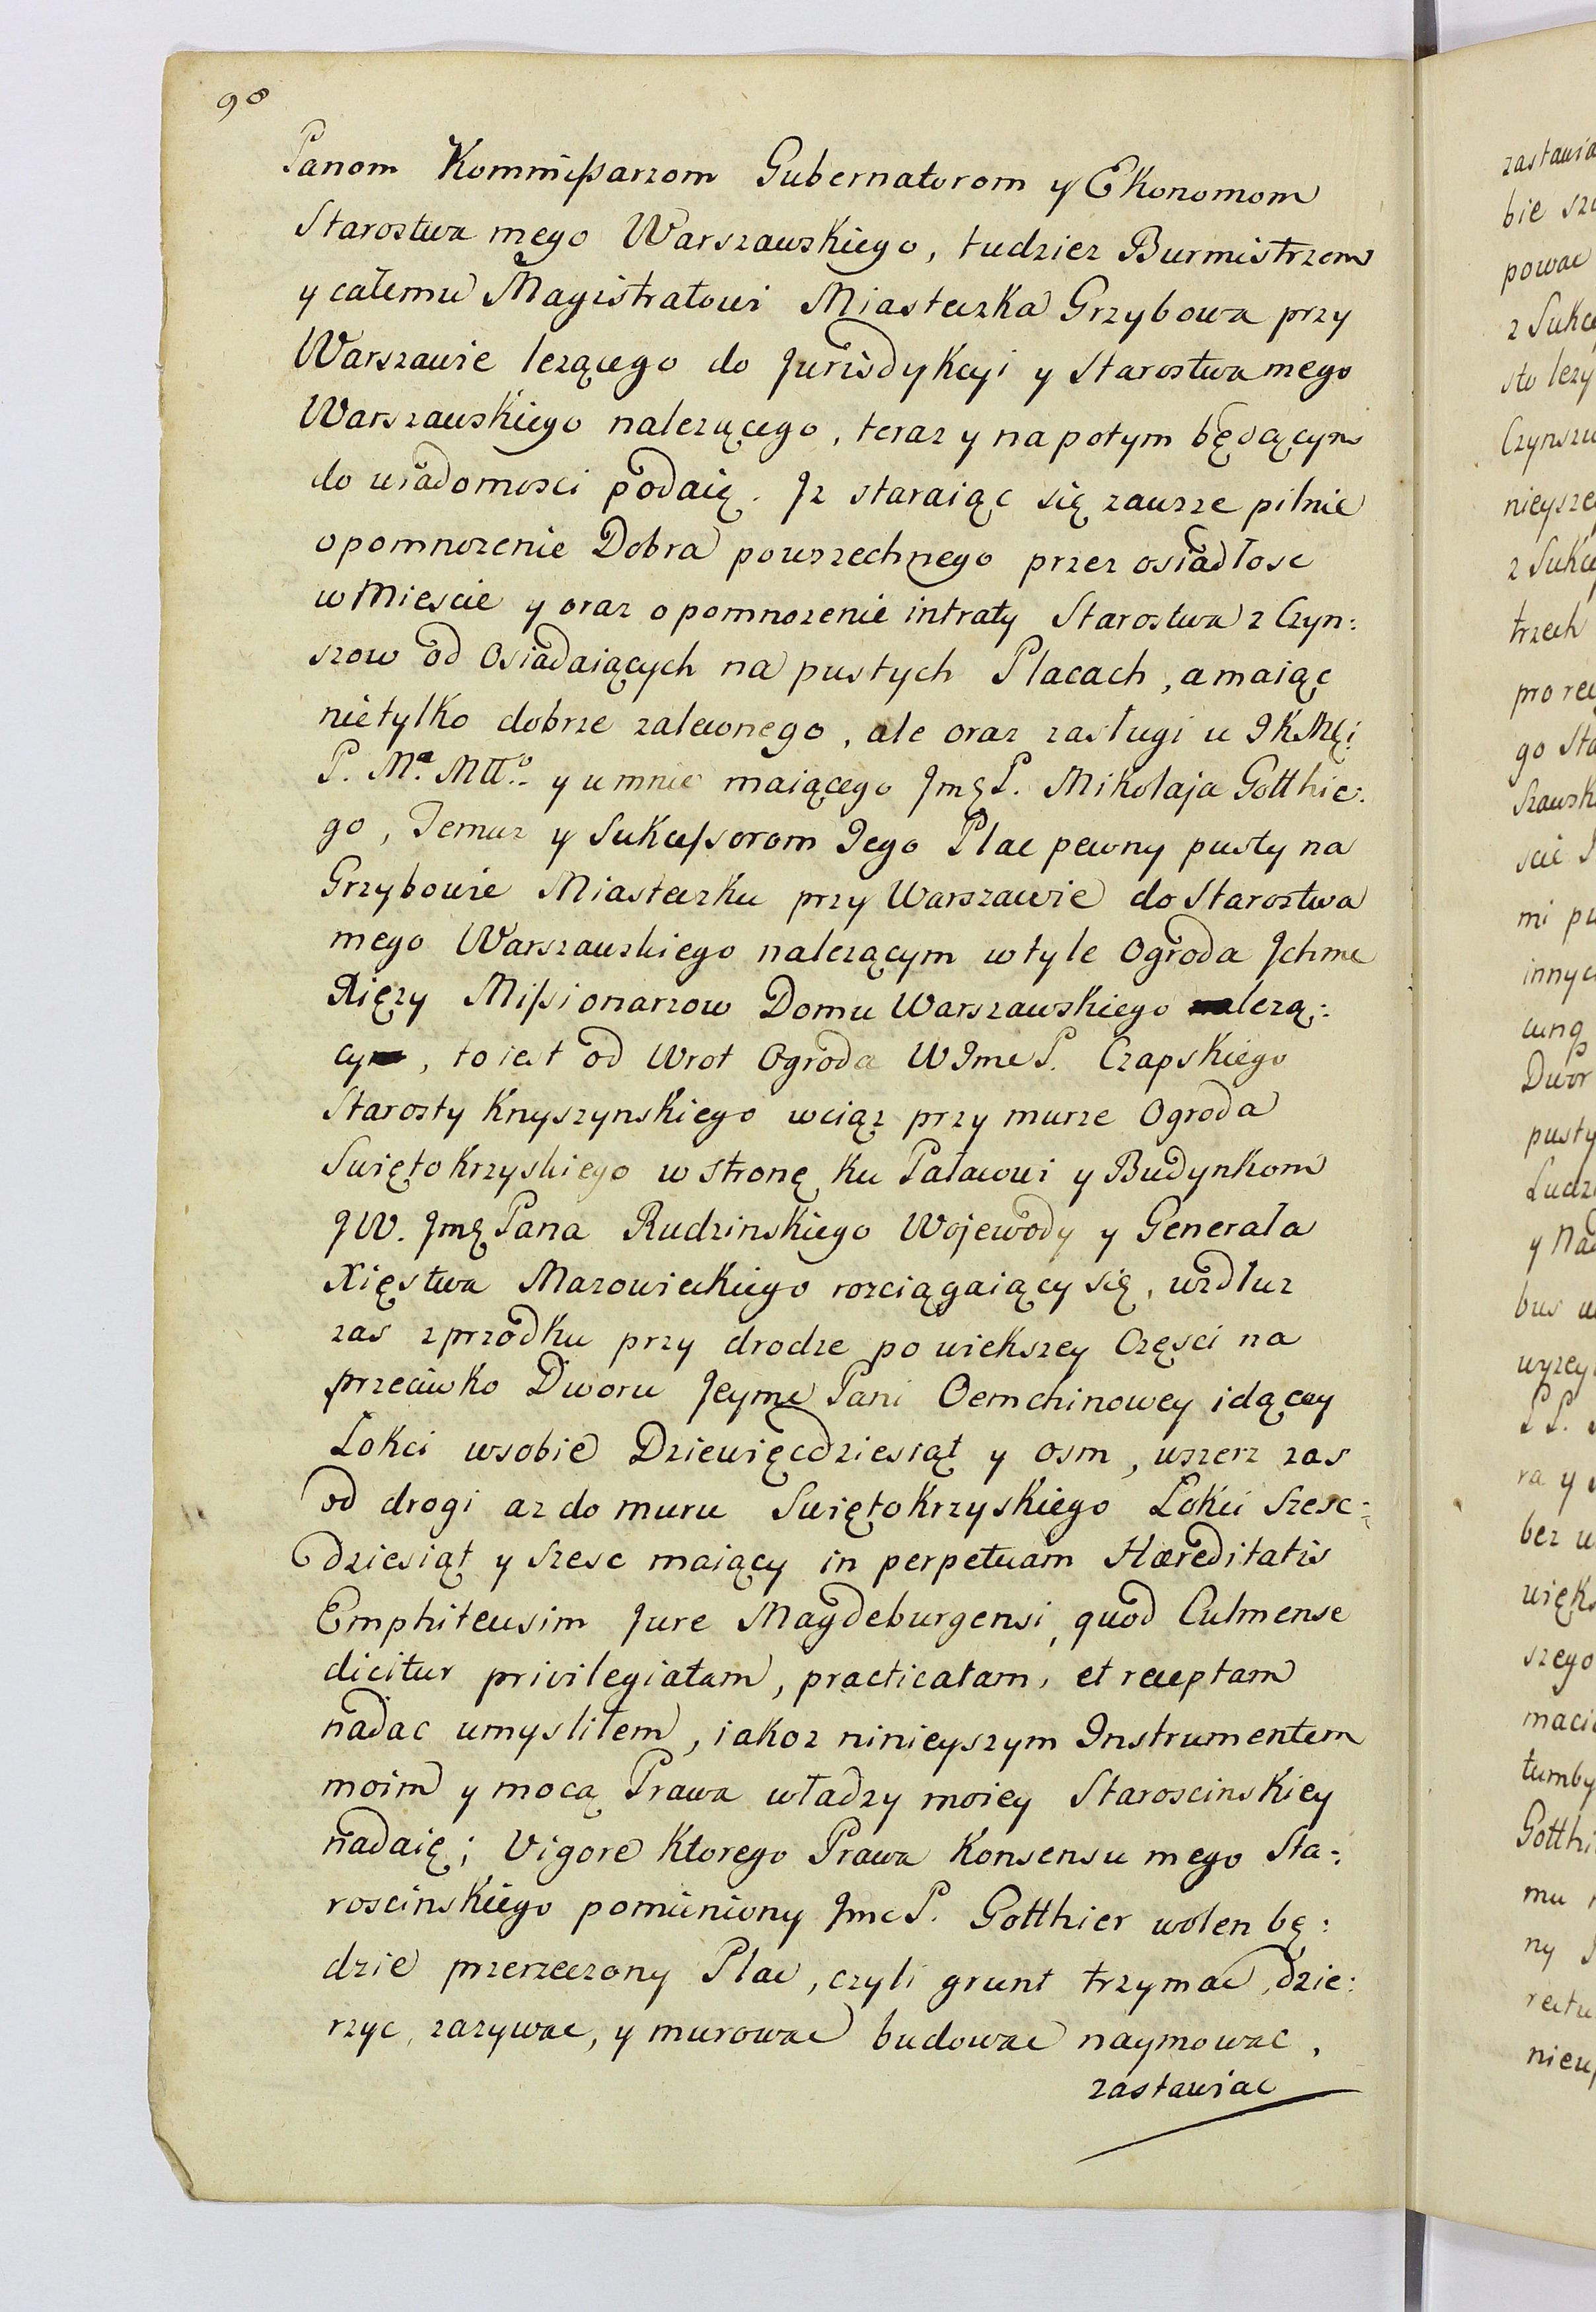 98
Panom Kommißarzom Gubernatorom y Ekonomom
Starostwa mego Warszawskiego, tudziez Burmistrzom
y całemu Magistratowi Miasteczka Grzybowa przy
Warszawie lezącego do Jurisdykcyi y Starostwa mego
Warszawskiego nalezącego, teraz y na potym będącym
do wiadomosci podaię. Jz staraiąc się zawsze pilnie
o pomnozenie Dobra powszechnego przez osiadłosc
w Miescie y oraz o pomnozenie intraty Starostwa z Czyn:
szow od Osiadaiących na pustych Placach, a maiąc
nietylko dobrze zalewnego, ale oraz zasługi u JKMci
P. Mº. Mttº. y u mnie maiącego JmęP. Mikołaja Gotthie:
go, Jemuz y Sukceßorom Jego Plac pewny pusty na
Grzybowie Miasteczku przy Warszawie do Starostwa
mego Warszawskiego nalezącym w tyle Ogroda Jchmc
Xięzy Mißionarzow Domu Warszawskiego nalezą:
cy, to iest od Wrot Ogroda WJmcP. Czapskiego
Starosty Knyszynskiego wciąz przy murze Ogroda
Swięto krzyskiego w stronę ku Pałacowi y Budynkom
JW. Jmę Pana Rudzinskiego Wojewody y Generała
Xięstwa Mazowieckiego rozciągaiący się, wzdłuz
zas z przodku przy drodze po wiekszey Częsci na
przeciwko Dworu Jeymę Pani Oemchinowey idącey
Łokci wsobie Dziewięcdziesiąt y osm, wszerz zas
od drogi az do muru Swiętokrzyskiego Łokci Szesc:
dziesiąt y Szesc maiący in perpetuam Hæreditatis
Emphiteusim Jure Magdeburgensi, quod Culmense
dicitur privilegiatam, practicatam, et receptam
nadac umysliłem, iakoz ninieyszym Instrumentem
moim y mocą Prawa władzy moiey Staroscinskiey
nadaię; Vigore Ktorego Prawa Konsensu mego Sta:
roscinskiego pomieniony JmcP. Gotthier wolen bę:
dzie przerzeczony Plac, czyli grunt trzymac, dzie:
rzyc, zazywac, y murowac budowac naymowac,
zastawiac